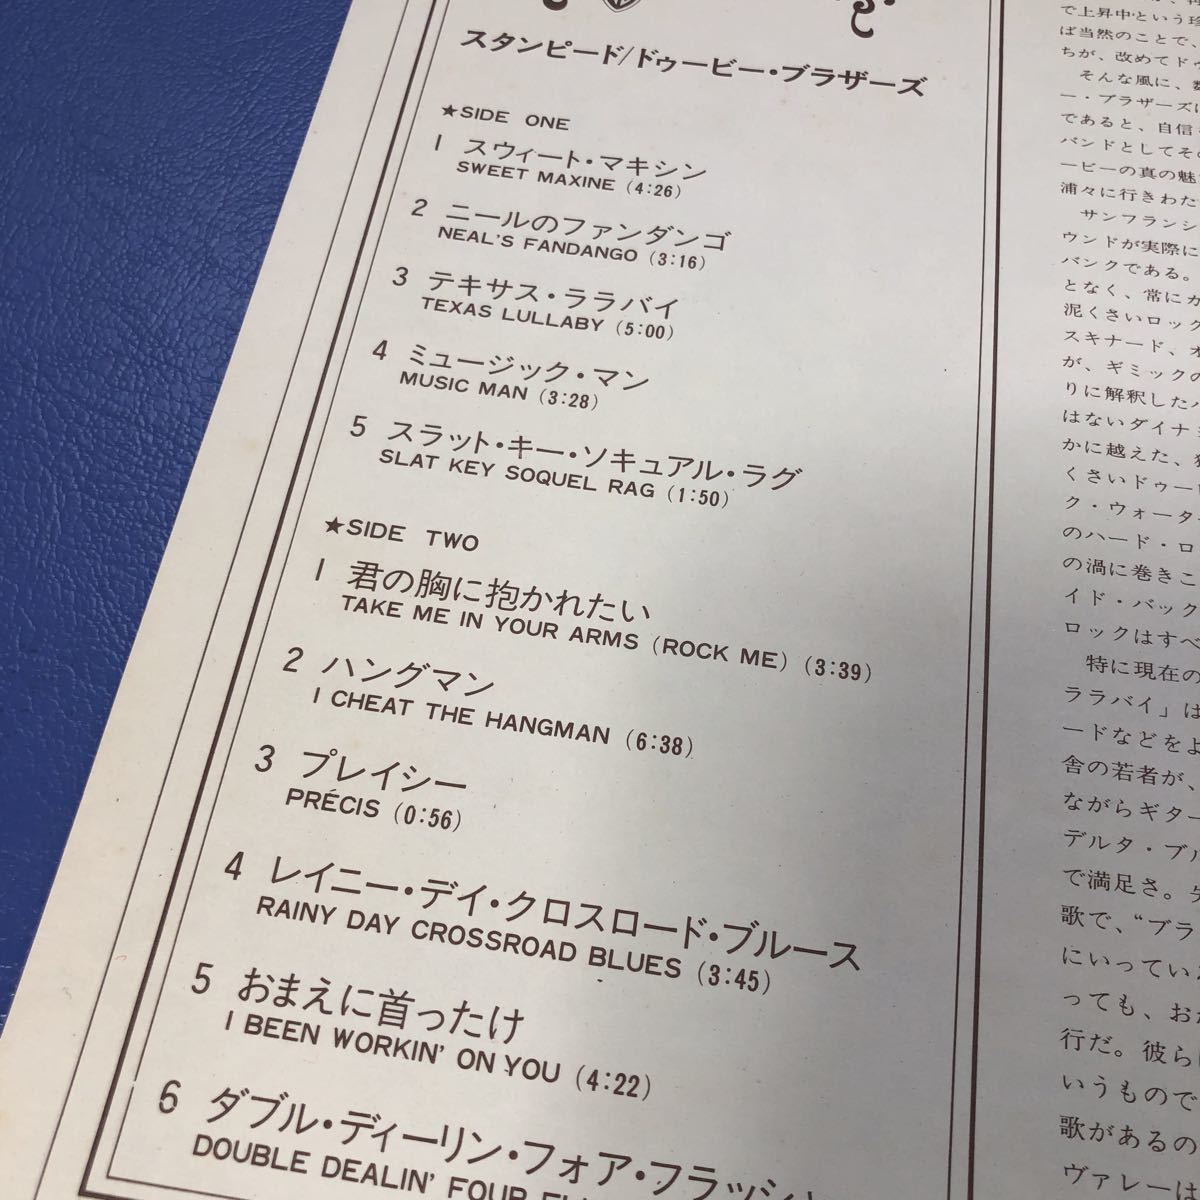 スタンピード/ドゥービー・ブラザーズ
★SIDE ONE
1 スウィート・マキシン
SWEET MAXINE (4:26)
2 ニールのファンダンゴ
NEAL'S FANDANGO (3:16)
3 テキサス・ララバイ
TEXAS LULLABY (5:00)
4 ミュージック・マン
MUSIC MAN (3:28)
5 スラット・キー・ソキュアル・ラグ
SLAT KEY SOQUEL RAG (1:50)
★SIDE TWO
1 君の胸に抱かれたい
TAKE ME IN YOUR ARMS (ROCK ME) (3:39)
2 ハングマン
I CHEAT THE HANGMAN (6:38)
3 プレイシー
PRÉCIS (0:56)
4 レイニー・デイ・クロスロード・ブルース
RAINY DAY CROSSROAD BLUES (3:45)
5 おまえに首ったけ
I BEEN WORKIN' ON YOU (4:22)
6 ダブル・ディーリン・フォア・フラッシ
DOUBLE DEALIN' FOUR
で上昇中という珍
ば当然のことで、
ちが、改めてド
そんな風に、
ー・ブラザーズに
であると、自信
バンドとしてその
ービーの真の魅
浦々に行きわた
サンフランシ
ウンドが実際に
バンクである。
となく、常にカ
泥くさいロック
スキナード、オ
が、ギミックの
りに解釈した
はないダイナ
かに越えた、
くさいドゥー
ク・ウォータ
のハード・ロ
の渦に巻きこ
イド・バック
ロックはすべ
特に現在の
ララバイ」は
ードなどをよ
舎の若者が、
ながらギター
デルタ・ブル
で満足さ。
歌で、“ブラ
にいってい
っても、お
行だ。彼ら
いうもので
歌があるの
ヴァレーは